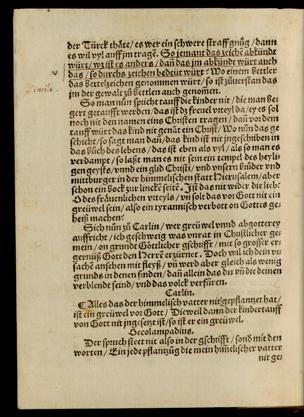 der Türck thäte/ es wer ein schwere straff gnůg/ dann
es wil vyl auff jm tragē. So jemant das zeichē abkündt
würt/ wz ist es anders/ dañ das jm abkündt würt auch
das/ so durchs zeichen bedeüt würt? Wo einem bettler
das bettelzeichen genommen würt/ so ist zůuerstan das
jm der gewalt zů bettlen auch genomen.
So man nůn spricht tauff die kinder nit/ die man be
gert getaufft werden/ das ist dz freuel vrteyl da/ ey es sol
noch nit den namen eins Christen tragen/ dañ vor dem
tauff würt das kind nit genāt ein Christ/ Wo nůn das ge
schicht/ so sagt man dañ/ das kind ist nit jngeschriben in
das bůch des lebens/ das ist eben als vyl/ als so man es
verdampt/ so laßt man es nit sein ein tempel des heyli-
gen geysts/ vnnd ein glid Christi/ vnd vnsern brůder vnd
mitburger in der himmelischen statt Hierusalem/ aber
schon ein bock zur lincke seitē. Ist das nit wider die lieb?
O des fräuenlichen vrteyls/ vñ solt das vor Gott nit ein
greüwel sein/ also ein tyrannisch verbott on Gottes ge-
heiß machen?
Sich nůn zů Carlin/ wer greüwel vnnd abgötterey
auffricht/ ich geschweig was vnrat in Christlicher ge-
mein/ on grundt Göttlicher gschrifft/ mit so grosser er-
gernüß Gott den Herrē erzürnet. Doch wil ich dein vr-
sachē ansehen mit fleyß/ vñ werd aber gleich als wenig
grunds in denen finden/ dañ allein das du vñ die deinen
verblendt seind/ vnd das volck verfüren.
Carlin.
Alles das der himmelisch vatter nit gepflantzet hat/
ist ein greüwel vor Gott/ Dieweil dann der kindertauff
von Gott nit jngesetzt ist/ so ist er ein greüwel.
Oecolampadius.
Der spruch steet nit also in der gschifft/ sond̄ mit den
worten/ Ein jede pflantzůg die mein himelischer vatter
nit ge-